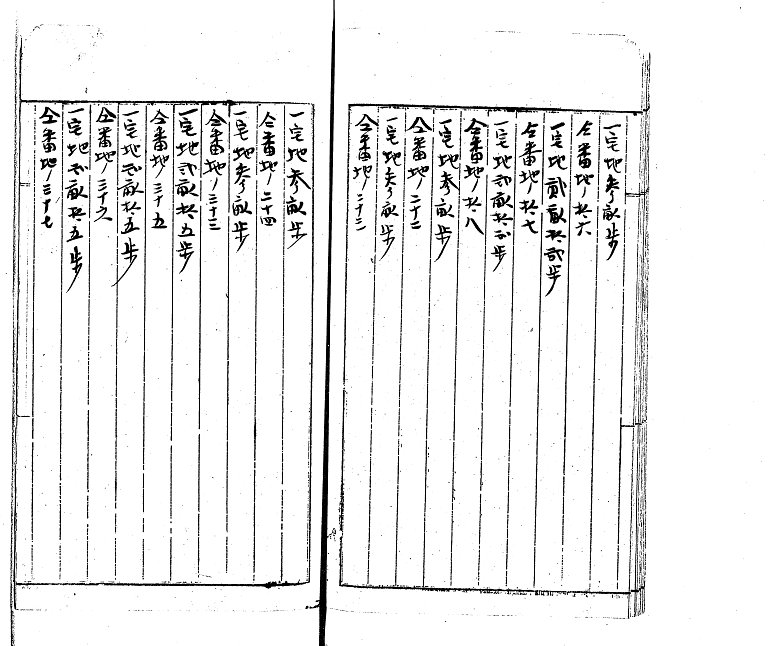 一宅地参畝歩
仝番地ノ拾六
一宅地貳畝拾貳歩
仝番地ノ拾七
一宅地貳畝拾貳歩
仝番地ノ拾八
一宅地参畝歩
仝番地ノ二十二
一宅地参畝歩
仝番地ノ二十三
一宅地参畝歩
仝番地ノ二十四
一宅地参畝歩
仝番地ノ三十三
一宅地貳畝拾五歩
仝番地ノ三十五
一宅地貳畝拾五歩
仝番地ノ三十六
一宅地貳畝拾五歩
仝番地ノ三十七